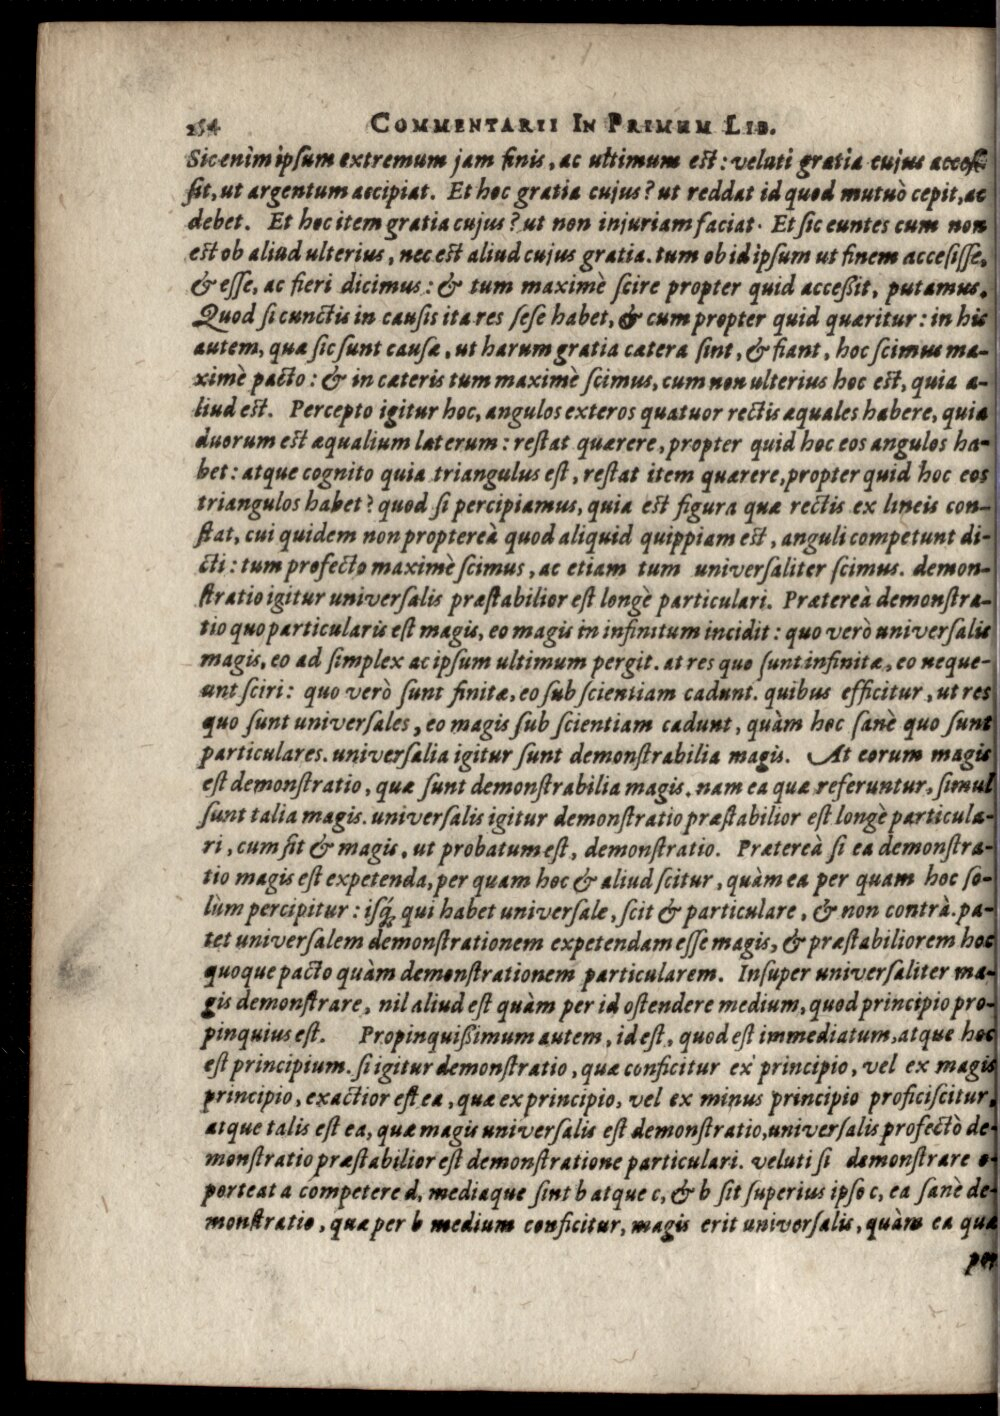 254 COMMENTARII IN PRIMUM LIB.
Sic enim ipſum extremum jam finis, ac ultimum eſt: veluti gratia cujus acceſ-
ſit, ut argentum accipiat. Et hoc gratia cujus? ut reddat id quod mutuò cepit, ac
debet. Et hoc item gratia cujus? ut non injuriam faciat. Et ſic euntes cum non
eſt ob aliud ulterius, nec eſt aliud cujus gratia. tum ob id ipſum ut finem acceſiſſe,
& eſſe, ac fieri dicimus: & tum maximè ſcire propter quid acceßit, putamus.
Quod ſi cunctis in cauſis ita res ſeſe habet, & cum propter quid quæritur: in his
autem, quæ ſic ſunt cauſæ, ut harum gratia cætera ſint, & fiant, hoc ſcimus ma-
ximè pacto: & in cæteris tum maximè ſcimus, cum non ulterius hoc eſt, quia a-
liud eſt. Percepto igitur hoc, angulos exteros quatuor rectis æquales habere, quia
duorum eſt æqualium laterum: reſtat quærere, propter quid hoc eos angulos ha-
bet: atque cognito quia triangulus eſt, reſtat item quærere, propter quid hoc eos
triangulos habet? quod ſi percipiamus, quia eſt figura quæ rectis ex lineis con-
ſtat, cui quidem non proptereà quod aliquid quippiam eſt, anguli competunt di-
cti: tum profecto maximè ſcimus, ac etiam tum univerſaliter ſcimus. demon-
ſtratio igitur univerſalis præſtabilior eſt longè particulari. Prætereà demonſtra-
tio quo particularis eſt magis, eo magis in infinitum incidit: quo verò univerſalis
magis, eo ad ſimplex ac ipſum ultimum pergit. at res quo ſunt infinitæ, eo neque-
unt ſciri: quo verò ſunt finitæ, eo ſub ſcientiam cadunt. quibus efficitur, ut res
quo ſunt univerſales, eo magis ſub ſcientiam cadunt, quàm hoc ſanè quo ſunt
particulares. univerſalia igitur ſunt demonſtrabilia magis. At eorum magis
eſt demonſtratio, quæ ſunt demonſtrabilia magis. nam ea quæ referuntur, ſimul
ſunt talia magis. univerſalis igitur demonſtratio præſtabilior eſt longè particula-
ri, cum ſit & magis, ut probatum eſt, demonſtratio. Prætereà ſi ea demonſtra-
tio magis eſt expetenda, per quam hoc & aliud ſcitur, quàm ea per quam hoc ſo-
lùm percipitur: iſq́; qui habet univerſale, ſcit & particulare, & non contrà. pa-
tet univerſalem demonſtrationem expetendam eſſe magis, & præſtabiliorem hoc
quoque pacto quàm demonſtrationem particularem. Inſuper univerſaliter ma-
gis demonſtrare, nil aliud eſt quàm per id oſtendere medium, quod principio pro-
pinquius eſt. Propinquißimum autem, id eſt, quod eſt immediatum, atque hoc
eſt principium. ſi igitur demonſtratio, quæ conficitur ex principio, vel ex magis
principio, exactior eſt ea, quæ ex principio, vel ex minus principio proficiſcitur,
atque talis eſt ea, quæ magis univerſalis eſt demonſtratio, univerſalis profectò de-
monſtratio præſtabilior eſt demonſtratione particulari. veluti ſi demonſtrare o-
porteat a competere d, mediaque ſint b atque c, & b ſit ſuperius ipſo c, ea ſanè de-
monſtratio, quæ per b medium conficitur, magis erit univerſalis, quàm ea quæ
per